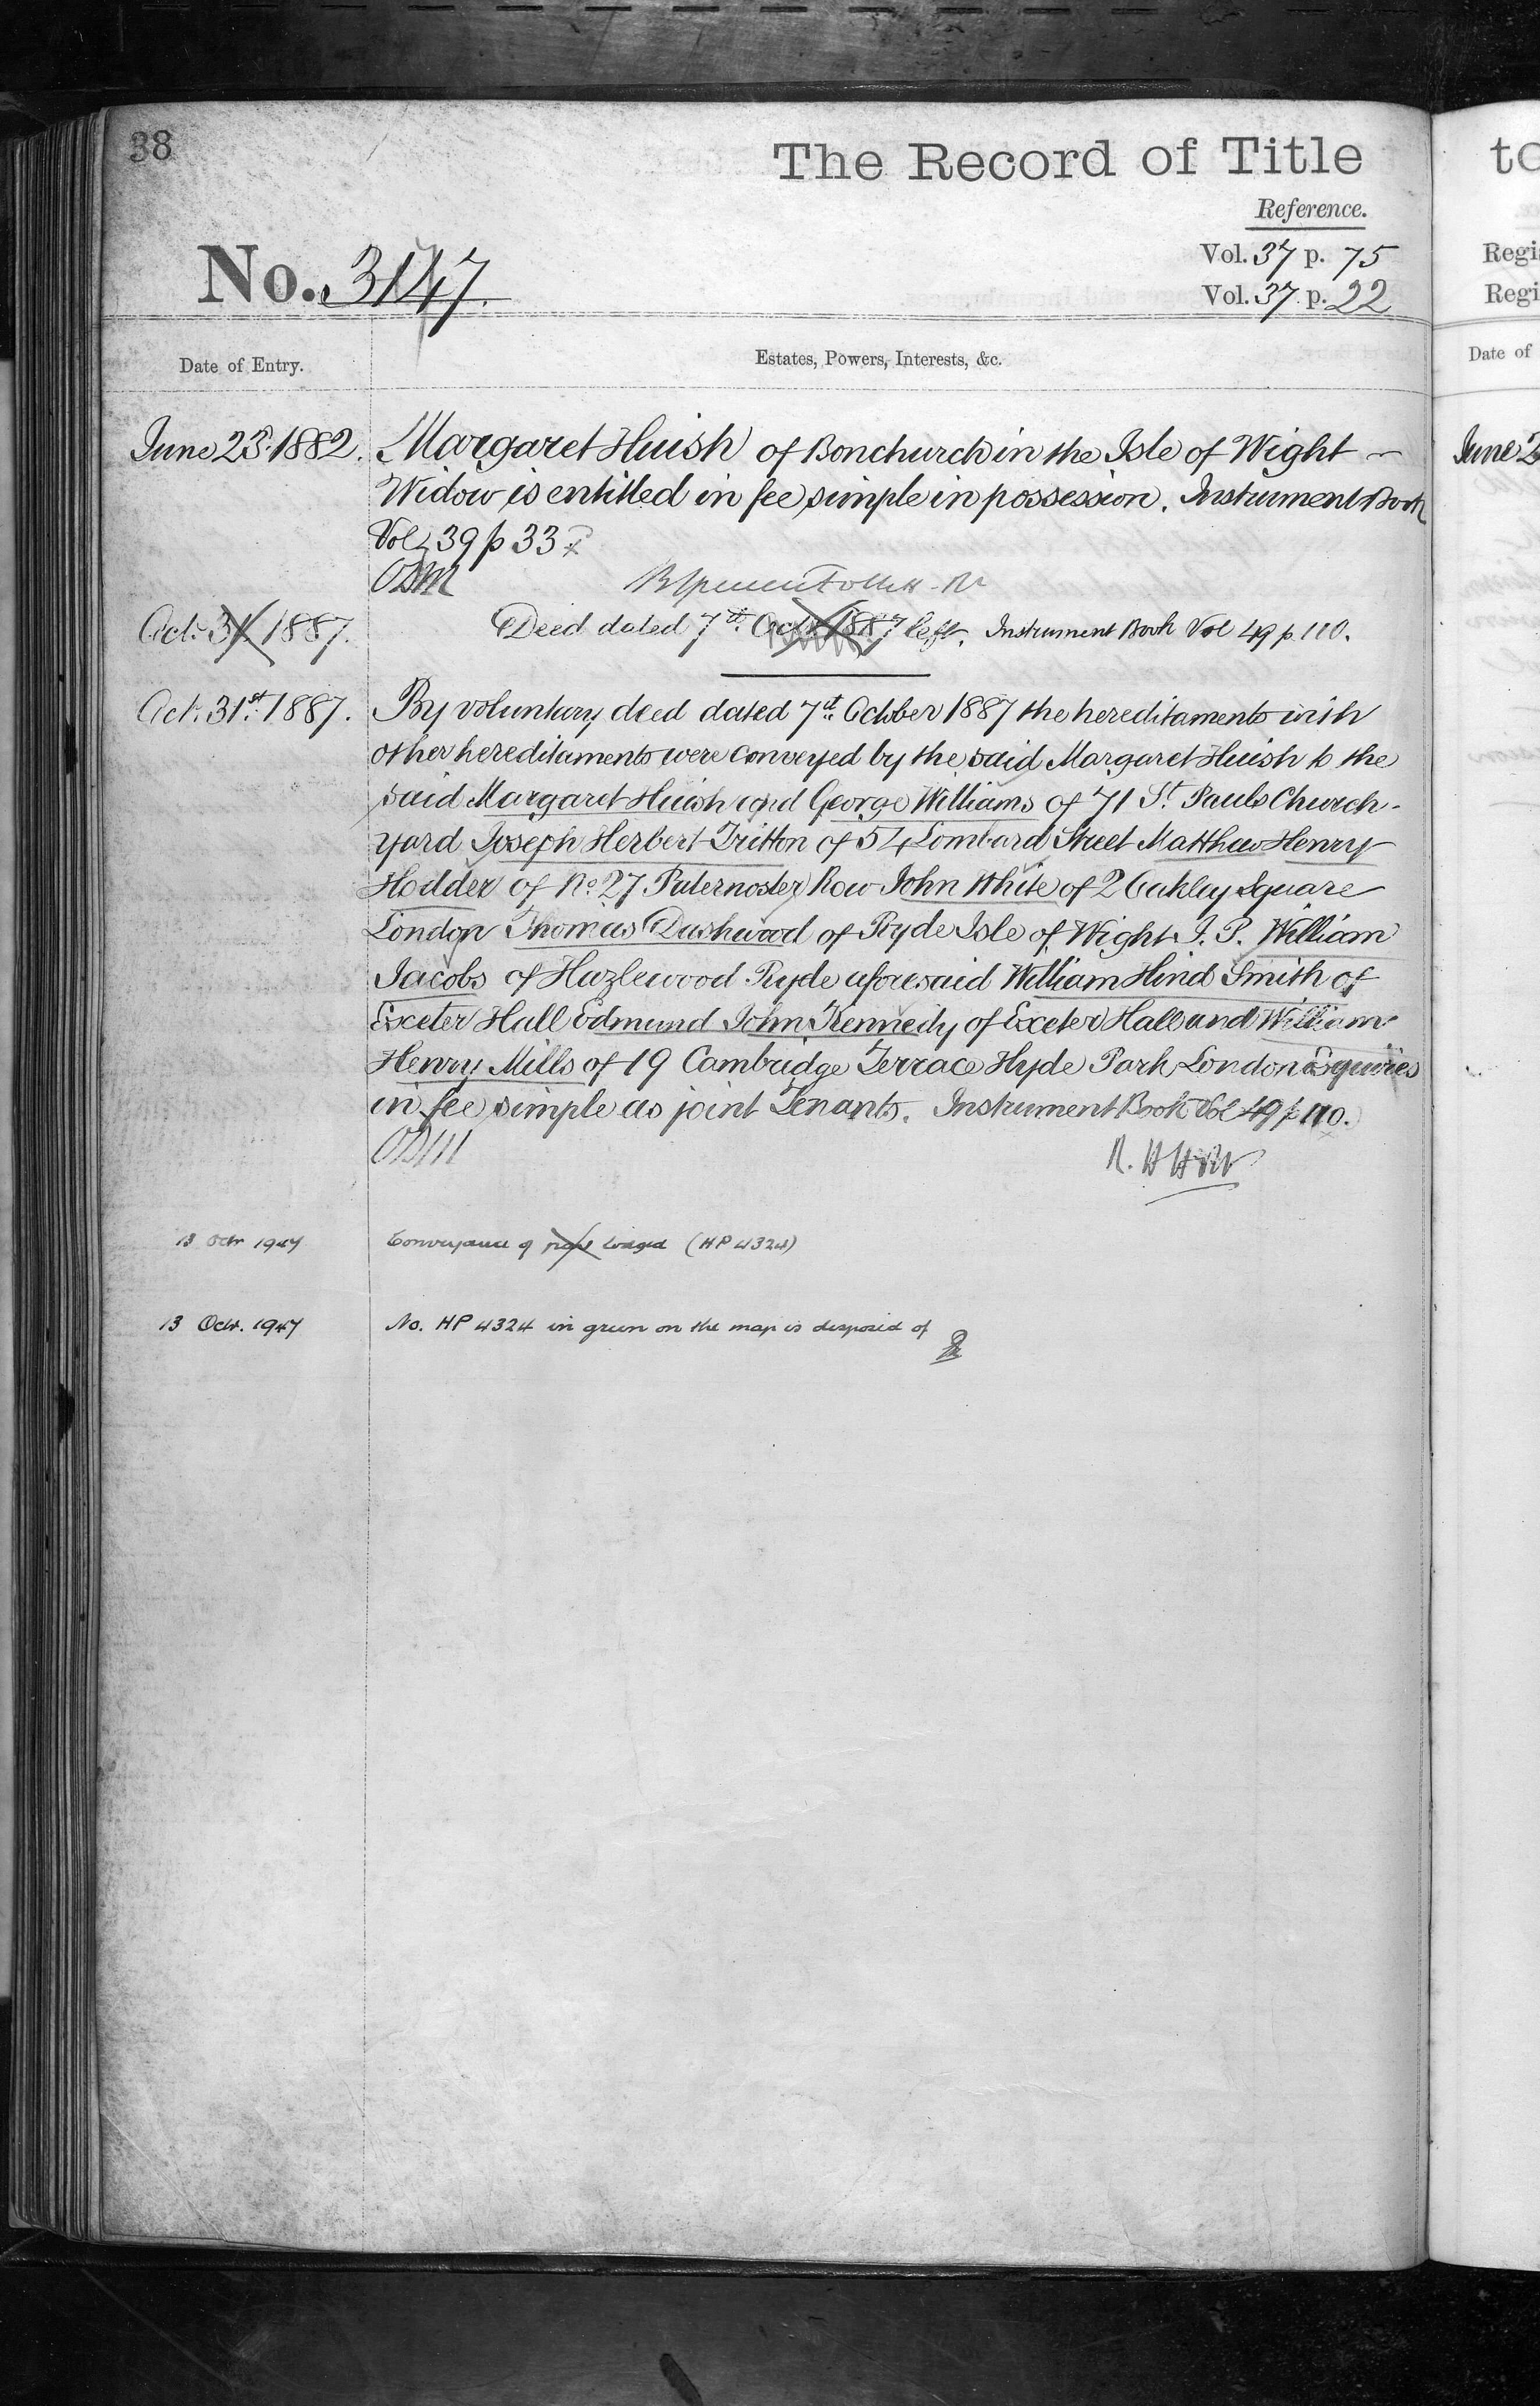 38
The Record of Title
Reference.
No. 3147.
Vol. 37 p. 75
Vol. 37 p. 22
Date of Entry.
Estates, Powers, Interests, &c.
June 23 1882. Margaret Huish of Bonchurch in the Isle of Wight
Widow is entitled in fee simple in possession. Instrument Book
Vol 39 p 33
Oct. 31 1887. Deed dated 7th Oct 1887 left. Instrument Book Vol 49 p 110.
Oct. 31st 1887. By voluntary deed dated 7th October 1887 the hereditaments with
other hereditaments were conveyed by the said Margaret Huish to the
said Margaret Huish and George Williams of 71 St Pauls Church-
yard Joseph Herbert Tritton of 54 Lombard Street Matthew Henry
Hodder of No 27 Paternoster Row John White of 2 Oakley Square
London Thomas Dashwood of Ryde Isle of Wight J. P. William
Jacobs of Hazlewood Ryde aforesaid William Hind Smith of
Exeter Hall Edmund John Kennedy of Exeter Hall and William
Henry Mills of 19 Cambridge Terrace Hyde Park London Esquires
in fee simple as joint Tenants. Instrument Book Vol 49 p 110.
13 Octr 1947 Conveyance of part lodged (HP 4324)
13 Oct. 1947 No. HP 4324 in green on the map is disposed of
to
Regi
Regi
Date of
June 2